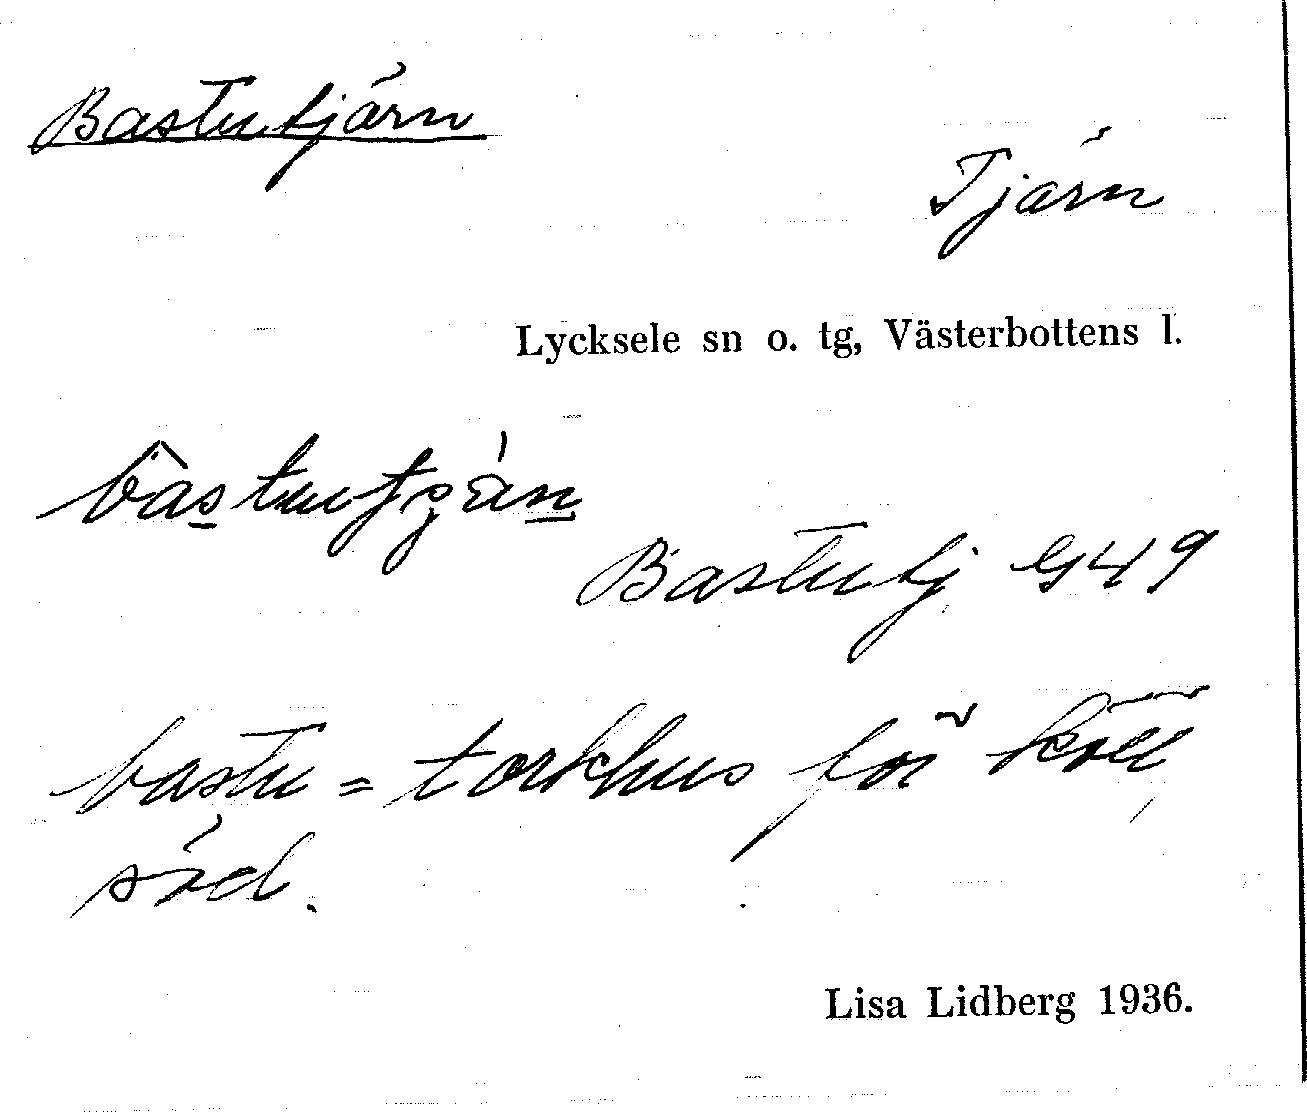 Bastutjärn
Tjärn
Lycksele sn o. tg, Västerbottens l.
Bastutj G49
bastu = torkhus för
säd.
Lisa Lidberg 1936.